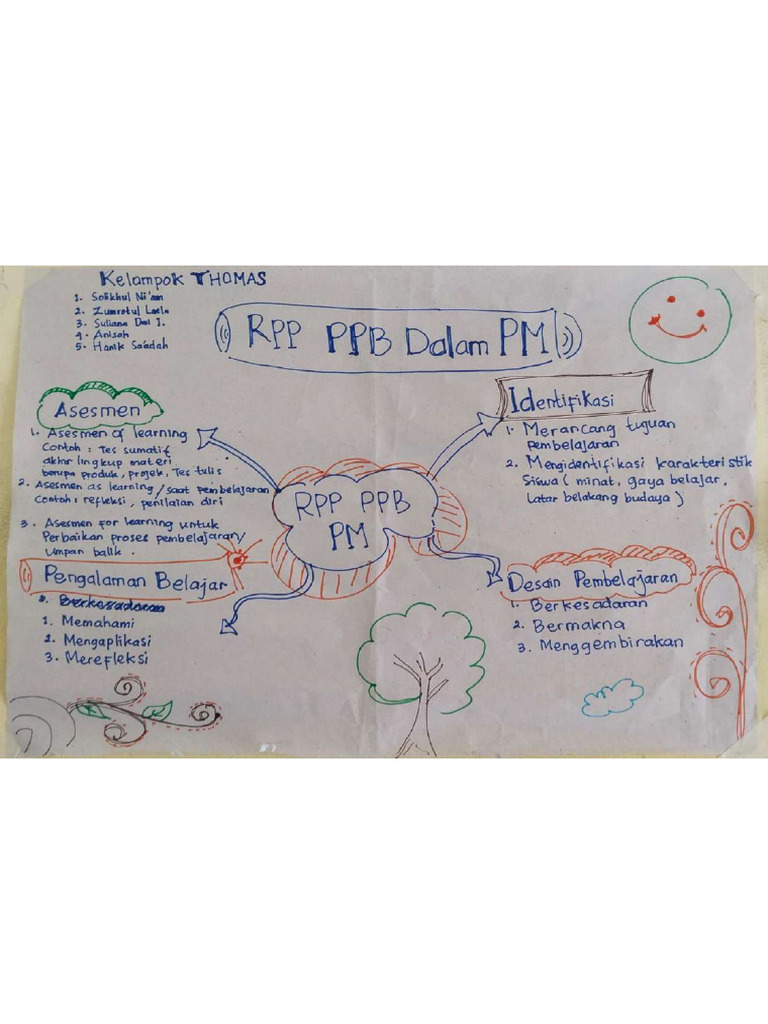 Kelampok THOMAS
1. Solikhul Ni'am
2. Zumrotul Laela
3. Suliana Dwi I.
4. Anisah
5. Hanik Sa'adah
RPP PPB Dalam PM
Asesmen
1. Asesmen of learning
Contoh : Tes sumatif
akhir lingkup materi
berupa produk, projek, Tes tulis
2. Asesmen as learning / saat pembelajaran
Contoh : refleksi, penilaian diri
3. Asesmen for learning untuk
Perbaikan proses pembelajaran/
Umpan balik.
Identifikasi
1. Merancang tuguan
pembelajaran
2. Mengidentifikasi karakteristik
Siswa ( minat, gaya belajar,
Latar belakang budaya )
RPP PPB
PM
Pengalaman Belajar
1. Memahami
2. Mengaplikasi
3. Merefleksi
Desain Pembelajaran
1. Berkesadaran
2. Bermakna
3. Menggembirakan